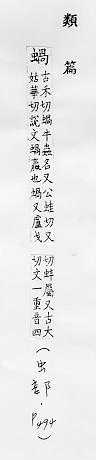 類篇
蝸
古禾切蝸牛蟲名又公蛙切又
姑華切說文蝸蠃也蝸又盧戈
切蚌屬又古火
切文一重音四
(虫部·P494)